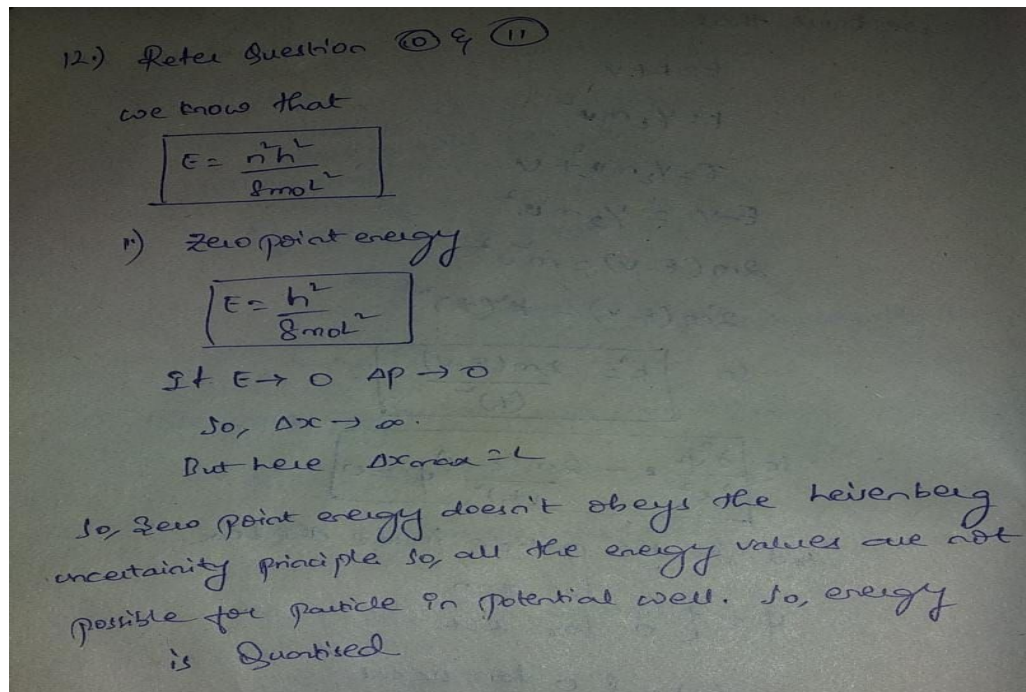 12.) Refer Question 10 & 11
we know that
E = n²h² / 8moL²
1.) Zero point energy
E = h² / 8moL²
If E → 0 Δp → 0
So, Δx → ∞.
But here Δxmax = L
So, Zero point energy doesn't obeys the heisenberg
uncertainity principle so, all the energy values are not
possible for particle in potential well. So, energy
is Quantised